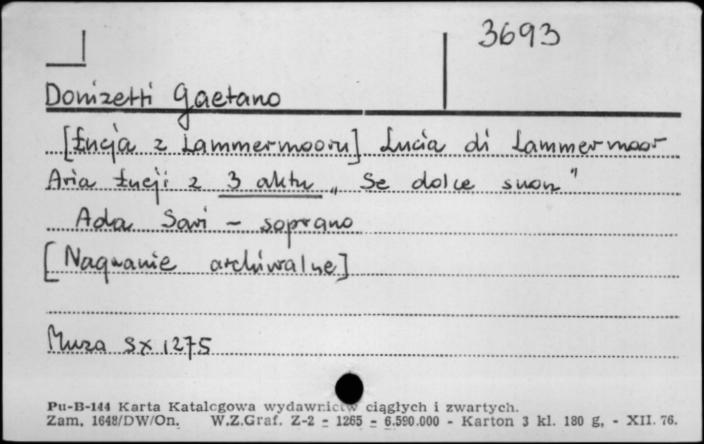 3693
Donizetti Gaetano
[Łucja z Lammermooru] Lucia di Lammermoor
Aria Łucji z 3 aktu „Se dolce suon"
Ada Sari - soprano
[Nagranie archiwalne]
Muza SX 1275
Pu-B-144 Karta Katalogowa wydawnictw ciągłych i zwartych.
Zam. 1648/DW/On. W.Z.Graf. Z-2 - 1265 - 6.590.000 - Karton 3 kl. 180 g, - XII. 76.